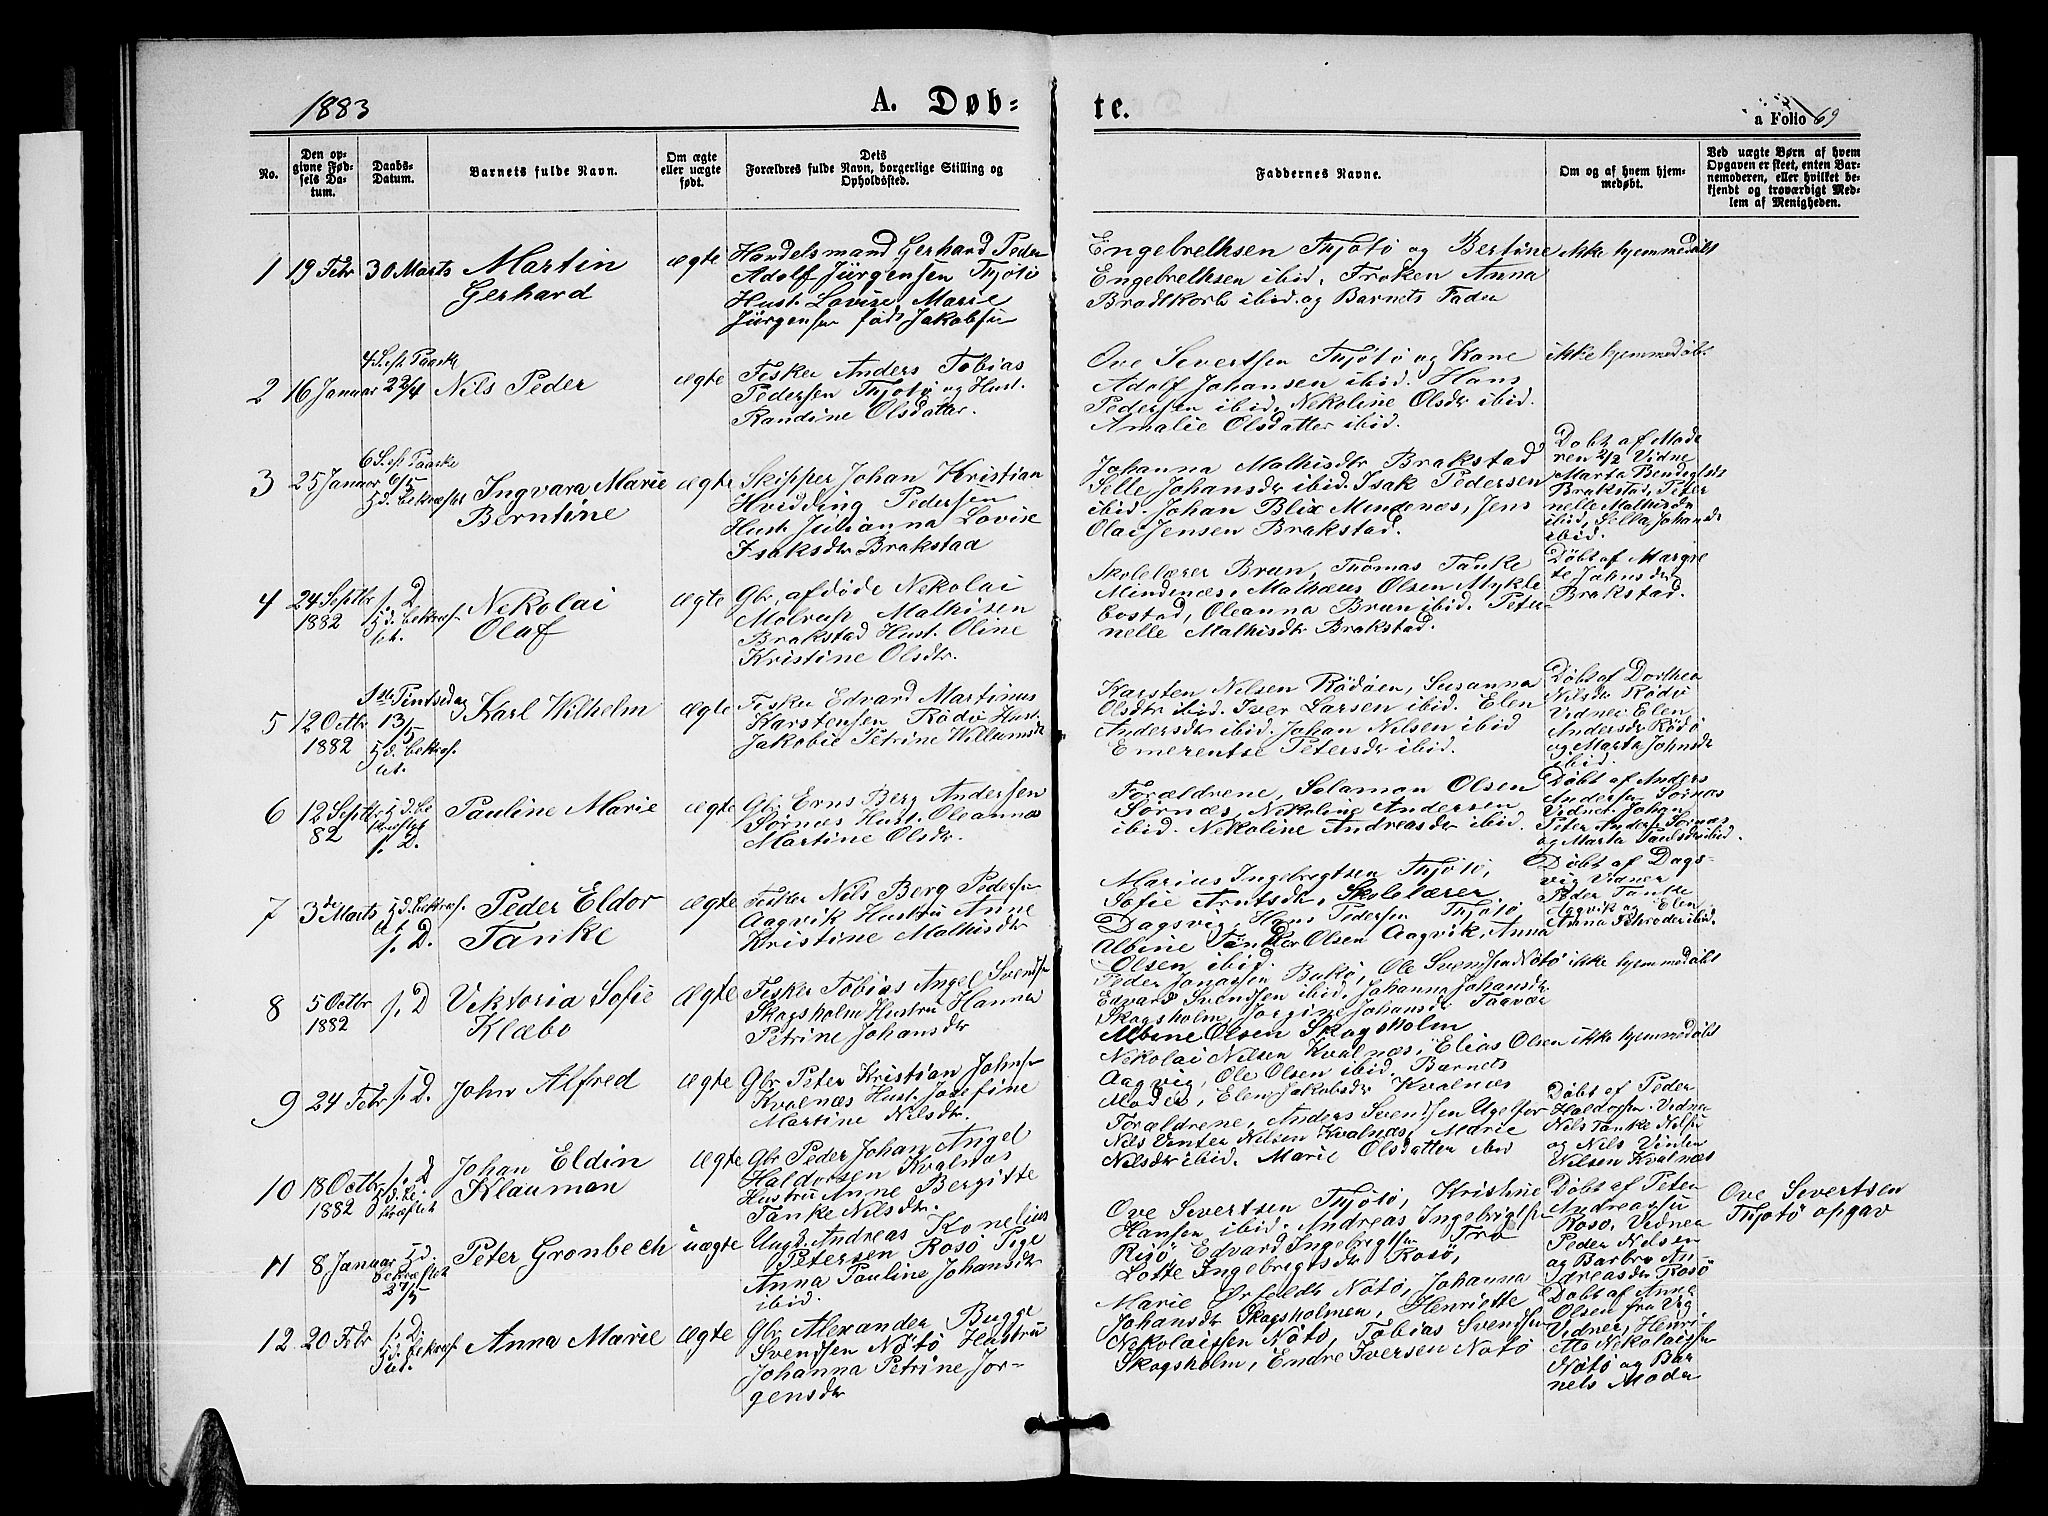 1883
A. Døb-
te.
a Folio 69
No.
Den op-
givne Fød-
sels Da-
tum.
Daabs-
Datum.
Barnets fulde Navn.
Om ægte
eller uægte
født.
Dets
Forældres fulde Navn, borgerlige Stilling og
Opholdssted.
Faddernes Navne.
Om og af hvem hjem-
medøbt.
Ved uægte Børn af hvem
Opgaven er skeet, enten Bar-
nemoderen, eller hvilket be-
kjendt og troværdigt Med-
lem af Menigheden.
1
19 Febr
30 Marts
Martin
Gerhard
ægte
Handelsmand Gerhard Peder
Adolf Jürgensen Thjøtø
Hust. Lovise Marie
Jürgensen født Jakobsen
Engebrethsen Thjøtø og Bertine
Engebrethsen ibid. Frøken Anna
Bradtkorb ibid. og Barnets Fader
ikke hjemmedøbt
2
16 Januar
4 S. eft. Paaske
22/4
Nils Peder
ægte
Fisker Anders Tobias
Pedersen Thjøtø og Hust.
Randine Olsdatter.
Ove Severtsen Thjøtø og Kone
Adolf Johansen ibid. Hans
Pedersen ibid. Nekoline Olsdr ibid.
Amalie Olsdatter ibid.
ikke hjemmedøbt
3
25 Januar
6 S. eft. Paaske
6/5
Hd. bekræftet
Ingvara Marie
Berntine
ægte
Skipper Johan Kristian
Hvidding Pedersen
Hust. Julianna Lovise
Isaksdr Brakstad
Johanna Mathisdtr Brakstad
Selle Johansdr ibid. Isak Pedersen
ibid. Johan Blix Mindenæs, Jens
Olai Jensen Brakstad.
Døbt af Mode
ren 2/2 Vidne
Marta Bendigtsdr
Brakstad, Peter
nelle Mathisdr
ibid, Sella Johansdr
ibid.
4
24 Septbr
1882
s. D
Hd. bekræf-
tet.
Nekolai
Olaf
ægte
Gbr. afdøde Nekolai
Molrup Mathisen
Brakstad Hust. Oline
Kristine Olsdr.
Skolelærer Brun, Thomas Tanke
Mindenæs, Matheus Olsen Mykle
bostad, Oleanna Brun ibid. Peter-
nelle Mathisdtr Brakstad.
Døbt af Margre
te Johnsdr
Brakstad.
5
12 Octbr
1882
1ste Pintsedag
13/5
Hd. bekræf-
tet.
Karl Wilhelm
ægte
Fisker Edvard Martinus
Karstensen Rødø Hust.
Jakobie Petrine Willumsdr
Karsten Nilsen Rødøen, Susanna
Olsdtr ibid. Iver Larsen ibid. Elen
Andersdr ibid. Johan Nilsen ibid
Emerentse Petersdr ibid.
Døbt af Dorthea
Nilsdr Rødø
Vidner Elen
Andersdr Rødø
og Marta Johnsdr
ibid.
6
12 Septbr
82
Hd. be
kræftet
s. D.
Pauline Marie
ægte
Gbr. Erns Berg Andersen
Sørnæs Hust. Oleanna
Martine Olsdr.
Forældrene, Salamon Olsen
Sørnæs, Nekoline Andersen
ibid. Nekoline Andreasdr ibid.
Døbt af Anders
Andersen Sørnæs
Vidner Johan
Peter Anders. Sørnæs
og Marta Paulsdr ibid.
7
3de Marts
Hd. bekræf-
tet
s. D.
Peder Eldor
Tanke
ægte
Fisker Nils Berg Pedersen
Aagvik Hustru Anne
Kristine Mathisdr
Marius Ingebregtsen Thjøtø,
Sofie Arntsdr, Skolelærer
Dagsvig, Hans Pedersen Thjøtø
Albine Tanke Olsen Aagvik, Anna
Olsen ibid.
Døbt af Dags-
vig Vidner
Peder Tanke
Aagvik og Elen
Anna Schrøder ibid.
8
5 Octbr
1882
s. D
Vektoria Sofie
Klæbo
ægte
Fisker Tobias Angel Svendsen
Skogsholm Hustru Hanna
Petrine Johansdr
Peder Jonassen Bukø, Ole Svendsen Nøtø
Edvard Svendsen ibid, Johanna Johansdr
Skogsholm, Jorgine Johansdr Taavær
Albine Olsen Skogsholm
ikke hjemmedøbt
9
24 Febr
s. D.
John Alfred
ægte
Gbr Peter Kristian Johns.
Kvalnæs Hust. Josefine
Martine Nilsdr.
Nekolai Nilsen Kvalnæs, Elias Olsen
Aagvig, Ole Olsen ibid. Barnets
Moder, Elen Jakobsdr Kvalnæs
ikke hjemmedøbt
10
18 Octbr
1882
s. D
Hd. be-
kræftet
Johan Eldin
Klauman
ægte
Gbr Peder Johan Angel
Haldorsen Kvalnæs
Hustru Anne Bergitte
Tanke Nilsdr.
Forældrene, Anders Svendsen Ugelfor
Næs Vinter Nilsen Kvalnæs, Marie
Nilsdr ibid. Marie Olsdatter ibid
Døbt af Peder
Haldorsen. Vidner
Nils Tanke Nilsen
og Nils Vinter
Nilsen Kvalnæs
11
8 Januar
Hd.
bekræftet
27/5
Peter Grønbech
uægte
Ungk. Andreas Konelius
Petersen Rosø Pige
Anna Pauline Johansdr
ibid.
Ove Severtsen Thjøtø, Kristine
Hansen ibid. Andreas Ingebrigtsen
Risø, Edvard Ingebrigtsen Tro
Lotte Ingebrigtsdr Rosø,
Døbt af Peter
Andreassen
Rosø. Vidner
Peder Nilsen
og Barbro An-
dreasdr Rosø
Ove Severtsen
Thjøtø opgav
12
20 Febr
s. D.
Hd. bekræf-
tet.
Anna Marie
ægte
Gbr Alexander Bugge
Svendsen Nøtø Hustru
Johanna Petrine Jør-
gensdr
Marie Ørfeldt Nøtø, Johanna
Johansdr Skogsholmen, Henriette
Nekolaissen Nøtø, Tobias Svendsen
Skogsholm, Endre Iversen Nøtø
Døbt af Anna
Olsen fra Veg
Vidner, Henri-
ette Nekolaissen
Nøtø og Bar
nets Moder